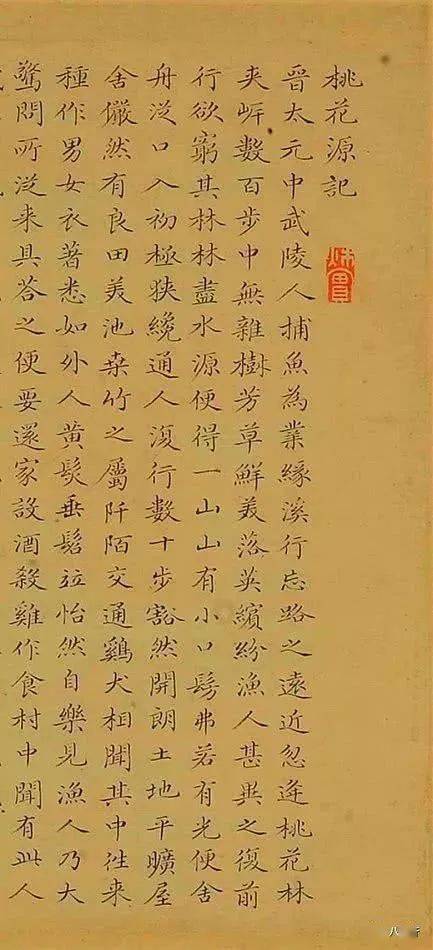 桃花源記
晉太元中武陵人捕魚為業緣溪行忘路之遠近忽逢桃花林
夾岸數百步中無雜樹芳草鮮美落英繽紛漁人甚異之復前
行欲窮其林林盡水源便得一山山有小口髣弗若有光便舍
舟從口入初極狹纔通人復行數十步豁然開朗土地平曠屋
舍儼然有良田美池桒竹之屬阡陌交通鷄犬相聞其中往來
種作男女衣著悉如外人黃髮垂髫竝怡然自樂見漁人乃大
驚問所從来具答之便要還家設酒殺雞作食村中聞有此人